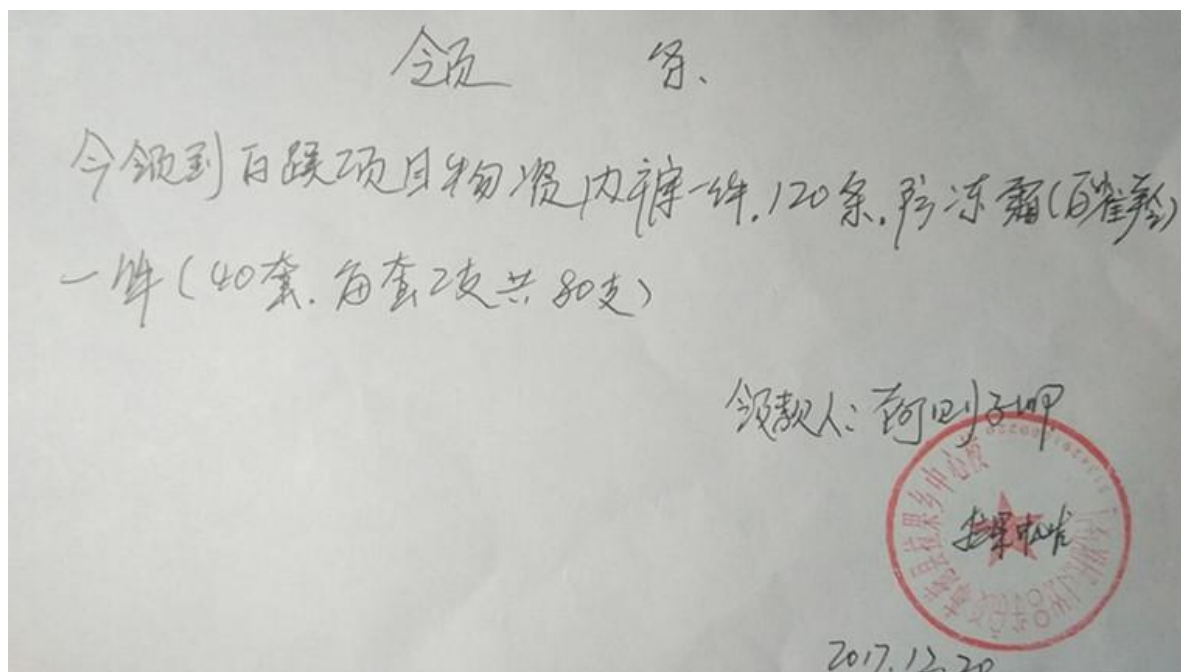 领 条、
今领到百蹊项目物资内裤一件.120条.防冻霜(百雀羚)
一件(40套.每套2支共80支)
领款人:阿则子呷
拉果中心校
2017.12.20